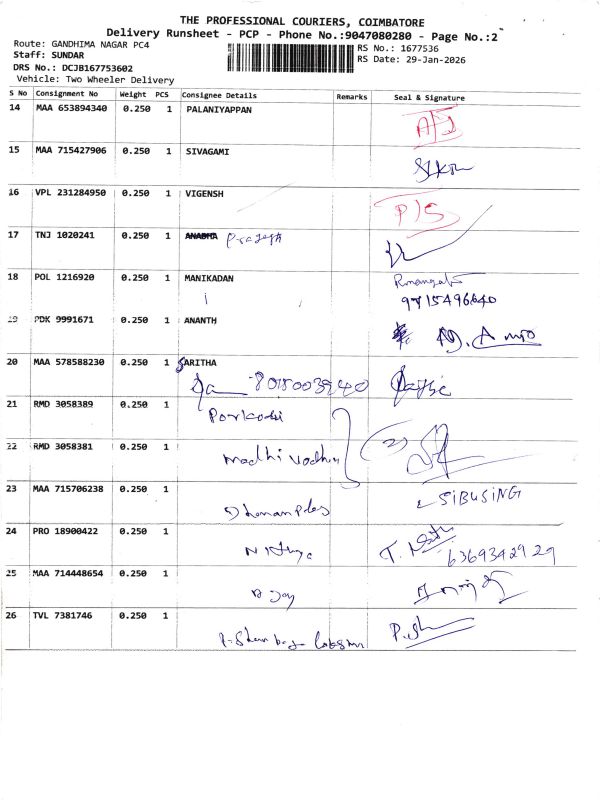 THE PROFESSIONAL COURIERS, COIMBATORE
Delivery Runsheet - PCP - Phone No.:9047080280 - Page No.:2
Route: GANDHIMA NAGAR PC4
Staff: SUNDAR
DRS No.: DCJB167753602
Vehicle: Two Wheeler Delivery
RS No.: 1677536
RS Date: 29-Jan-2026
S No Consignment No Weight PCS Consignee Details Remarks Seal & Signature
14 MAA 653894340 0.250 1 PALANIYAPPAN
15 MAA 715427906 0.250 1 SIVAGAMI
16 VPL 231284950 0.250 1 VIGENSH P/S
17 TNJ 1020241 0.250 1
18 POL 1216920 0.250 1 MANIKADAN
9715496640
19 PDK 9991671 0.250 1 ANANTH
20 MAA 578588230 0.250 1 SARITHA
8018003940
21 RMD 3058389 0.250 1 Porkodi
22 RMD 3058381 0.250 1 madhi vadhin
23 MAA 715706238 0.250 1 SIBUSING
24 PRO 18900422 0.250 1 Nithya
6369342929
25 MAA 714448654 0.250 1
26 TVL 7381746 0.250 1